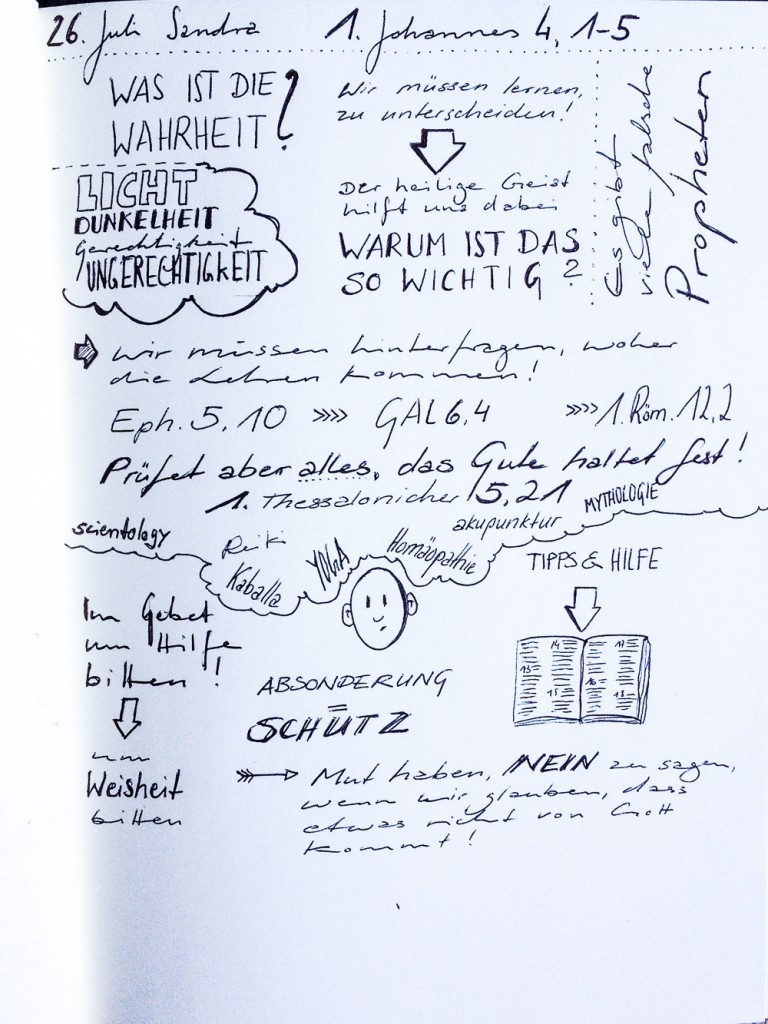 26. Juli Sandra
1. Johannes 4, 1-5
WAS IST DIE
WAHRHEIT?
Wir müssen lernen,
zu unterscheiden!
Es gibt
viele falsche
Propheten
LICHT
DUNKELHEIT
Gerechtigkeit
UNGERECHTIGKEIT
Der heilige Geist
hilft uns dabei
WARUM IST DAS
SO WICHTIG?
Wir müssen hinterfragen, woher
die Lehren kommen!
Eph. 5, 10 >>>> GAL 6,4 >>>> 1. Röm. 12,2
Prüfet aber alles, das Gute haltet fest!
1. Thessalonicher 5,21
MYTHOLOGIE
akupunktur
scientology
Reiki
YOGA
Homöopathie
Kaballa
TIPPS & HILFE
Im Gebet
um Hilfe
bitten!
14
17
13
16
15
18
ABSONDERUNG
=
SCHUTZ
um
Weisheit
bitten
Mut haben, NEIN zu sagen,
wenn wir glauben, dass
etwas nicht von Gott
kommt!